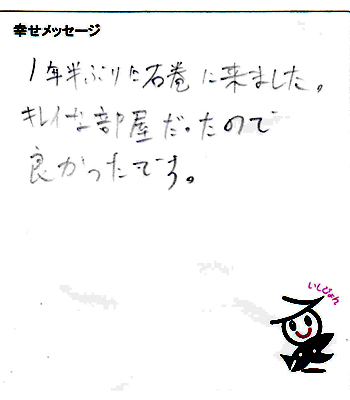 幸せメッセージ
1年半ぶりに石巻に来ました。
キレイな部屋だったので
良かったです。
いしぴょん